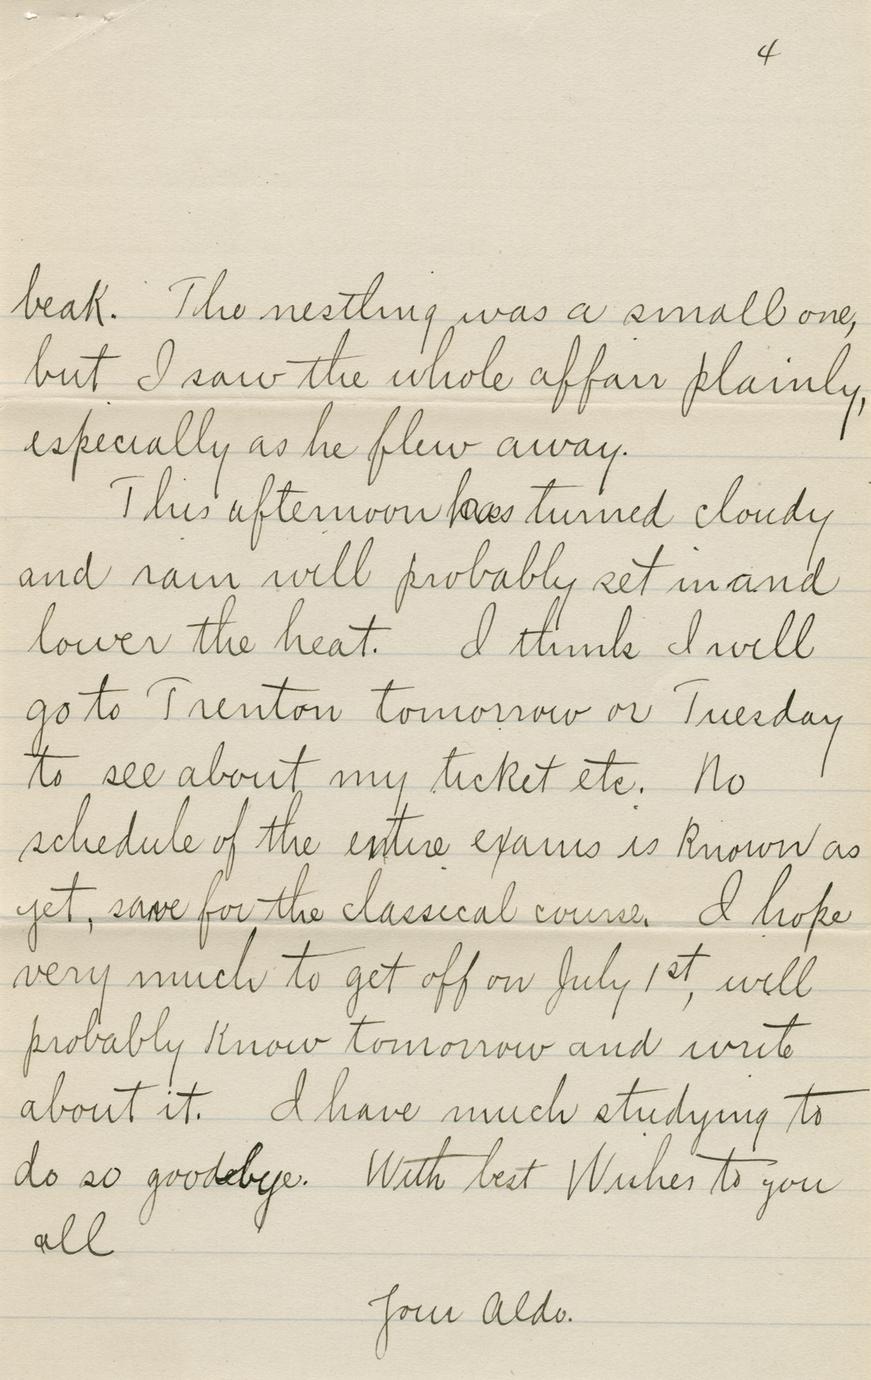 4
beak. The nestling was a small one,
but I saw the whole affair plainly,
especially as he flew away.
This afternoon has turned cloudy
and rain will probably set in and
lower the heat. I think I will
go to Trenton tomorrow or Tuesday
to see about my ticket etc. No
schedule of the entire exams is known as
yet, save for the classical course. I hope
very much to get off on July 1st, will
probably know tomorrow and write
about it. I have much studying to
do so goodbye. With best Wishes to you
all
Your Aldo.